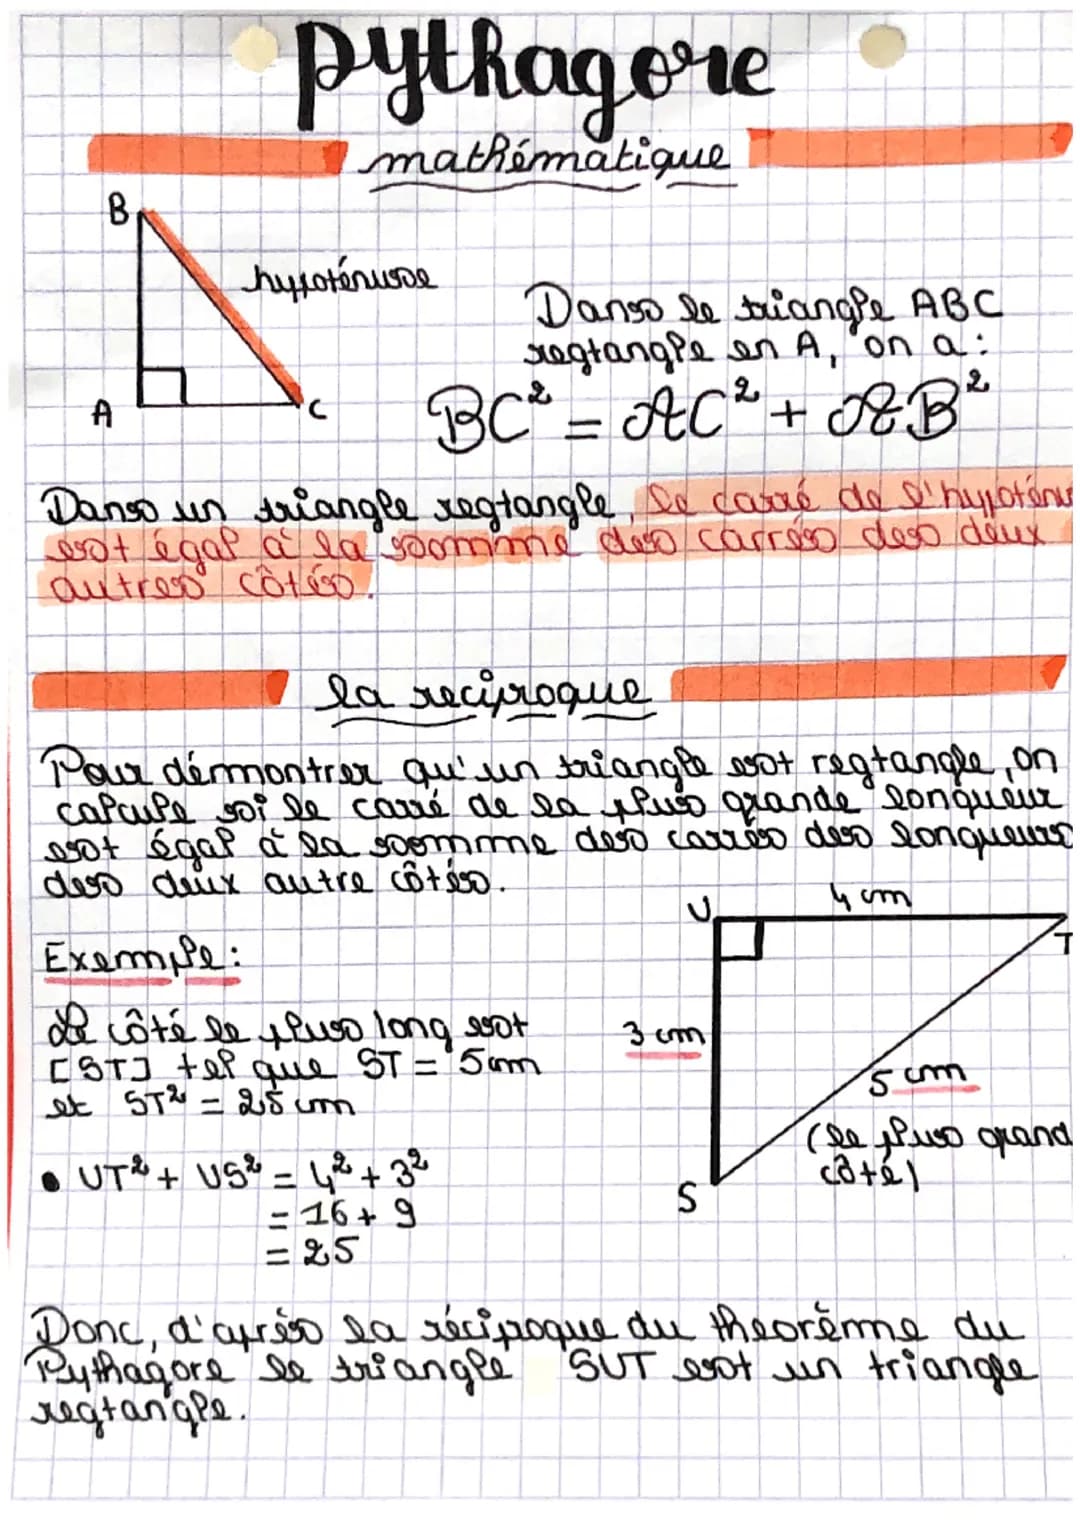 Pythagore
mathématique
B
hypoténuse
A
C
Dans le triangle ABC
regtangle en A, on a :
BC² = AC² + AB²
Dans un triangle regtangle, le carré de l'hypoténus
est égal à la somme des carrés des deux
autres côtés.
la reciproque
Pour démontrer qu'un triangle est regtangle, on
calcule si le carré de la plus grande longueur
est égal à la somme des carrés des longueurs
des deux autre côtés.
U
4 cm
T
Exemple :
3 cm
Le côté le plus long est
[ST] tel que ST = 5cm
et ST² = 25 cm
5 cm
(le plus grand
côté)
S
• UT² + US² = 4² + 3²
= 16 + 9
= 25
Donc, d'après la réciproque du theorème du
Pythagore le triangle SUT est un triangle
regtangle.